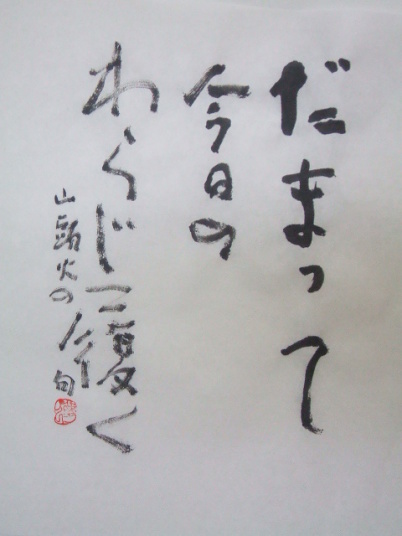 だまって
今日の
わらじ履く
山頭火の句